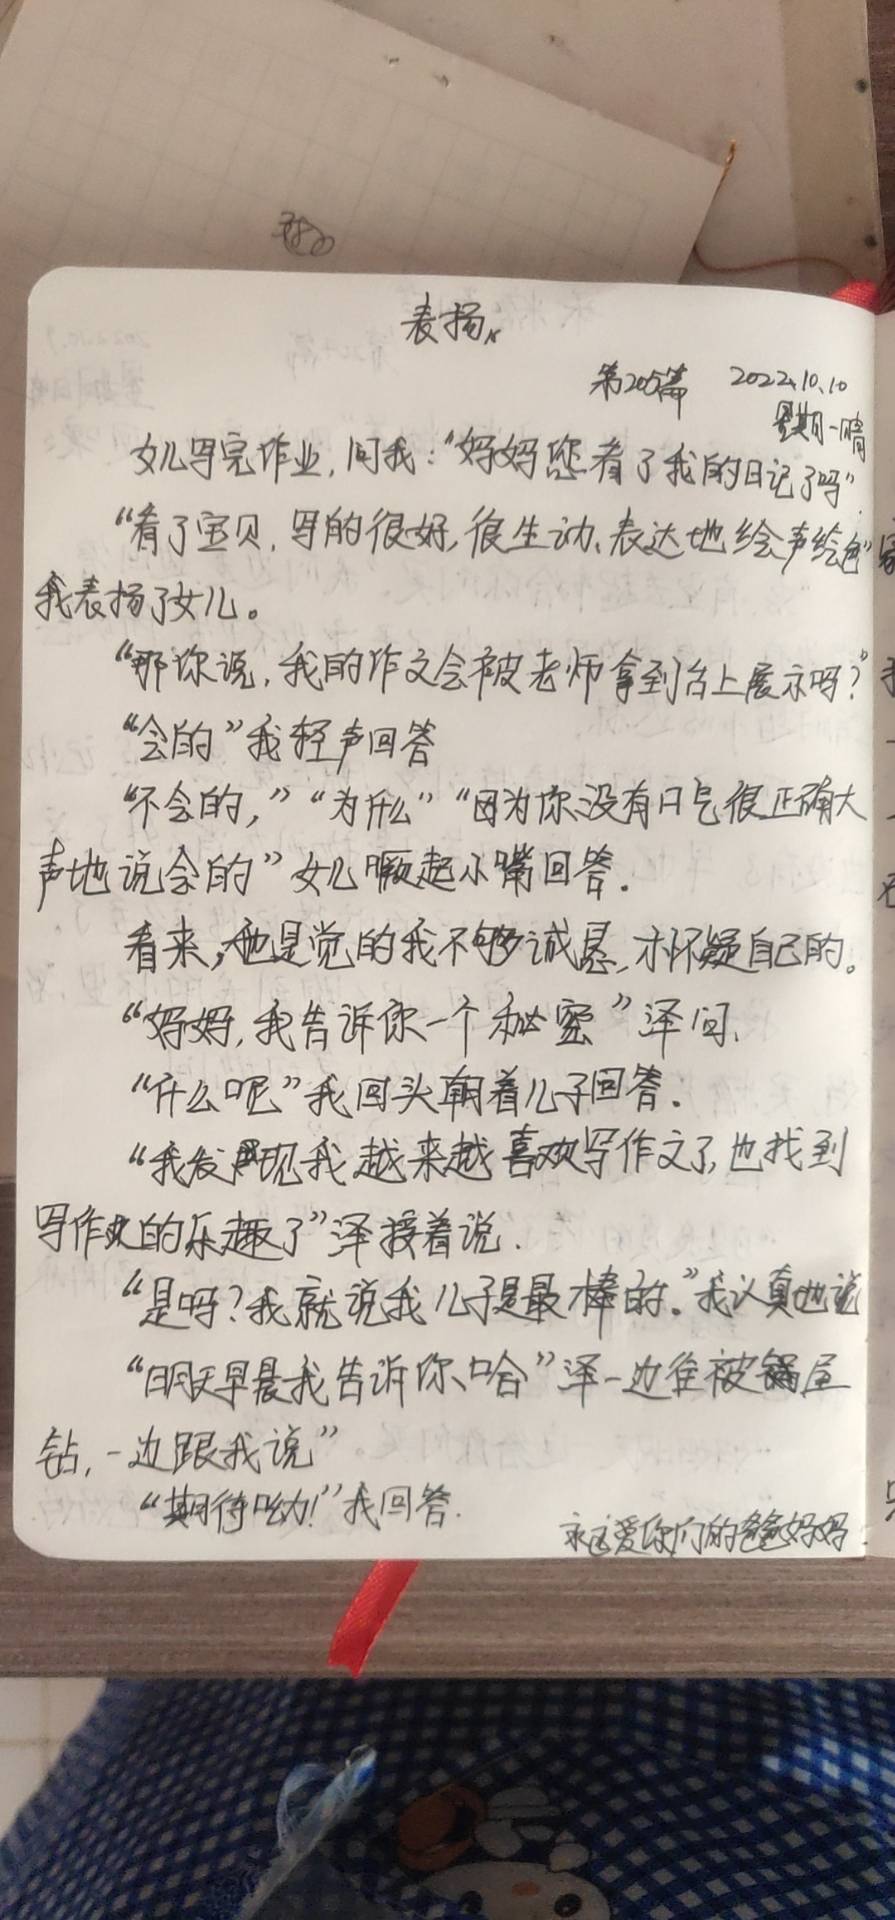 表扬
第205篇 2022.10.10
星期一晴
女儿写完作业,问我:“妈妈您看了我的日记了吗”
“看了宝贝,写的很好,很生动、表达地绘声绘色”
我表扬了女儿。
“那你说,我的作文会被老师拿到台上展示吗?”
“会的”我轻声回答
“不会的,”“为什么”“因为你没有口气很正确大
声地说会的”女儿噘起小嘴回答.
看来,她是觉的我不够诚恳,才怀疑自己的。
“妈妈,我告诉你一个秘密”泽问、
“什么呢”我回头朝着儿子回答.
“我发现我越来越喜欢写作文了,也找到
写作文的乐趣了”泽接着说.
“是吗?我就说我儿子是最棒的.”我认真地说
“明天早晨我告诉你、哈”泽一边往被窝里
钻,一边跟我说”
“期待呦!”我回答.
永远爱你们的爸爸妈妈